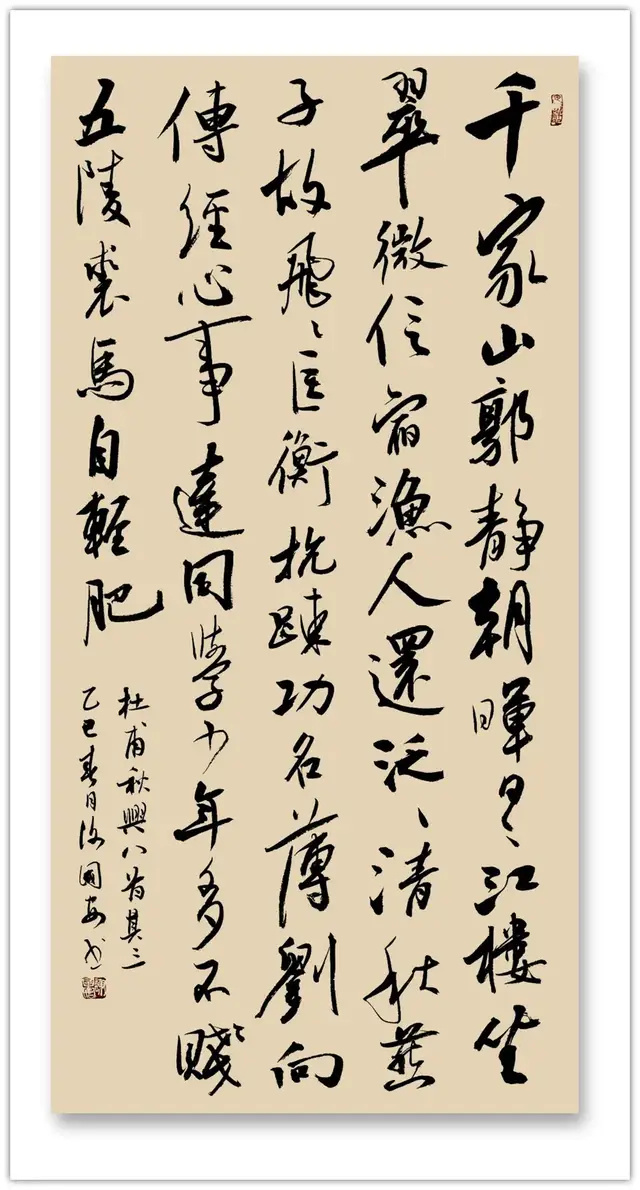 千家山郭静朝暉日〻江樓坐
翠微信宿漁人還泛〻清秋燕
子故飛〻匡衡抗踈功名薄劉向
傳經心事違同學少年多不賤
五陵裘馬自輕肥
杜甫秋興八首其三
乙巳春日國安书